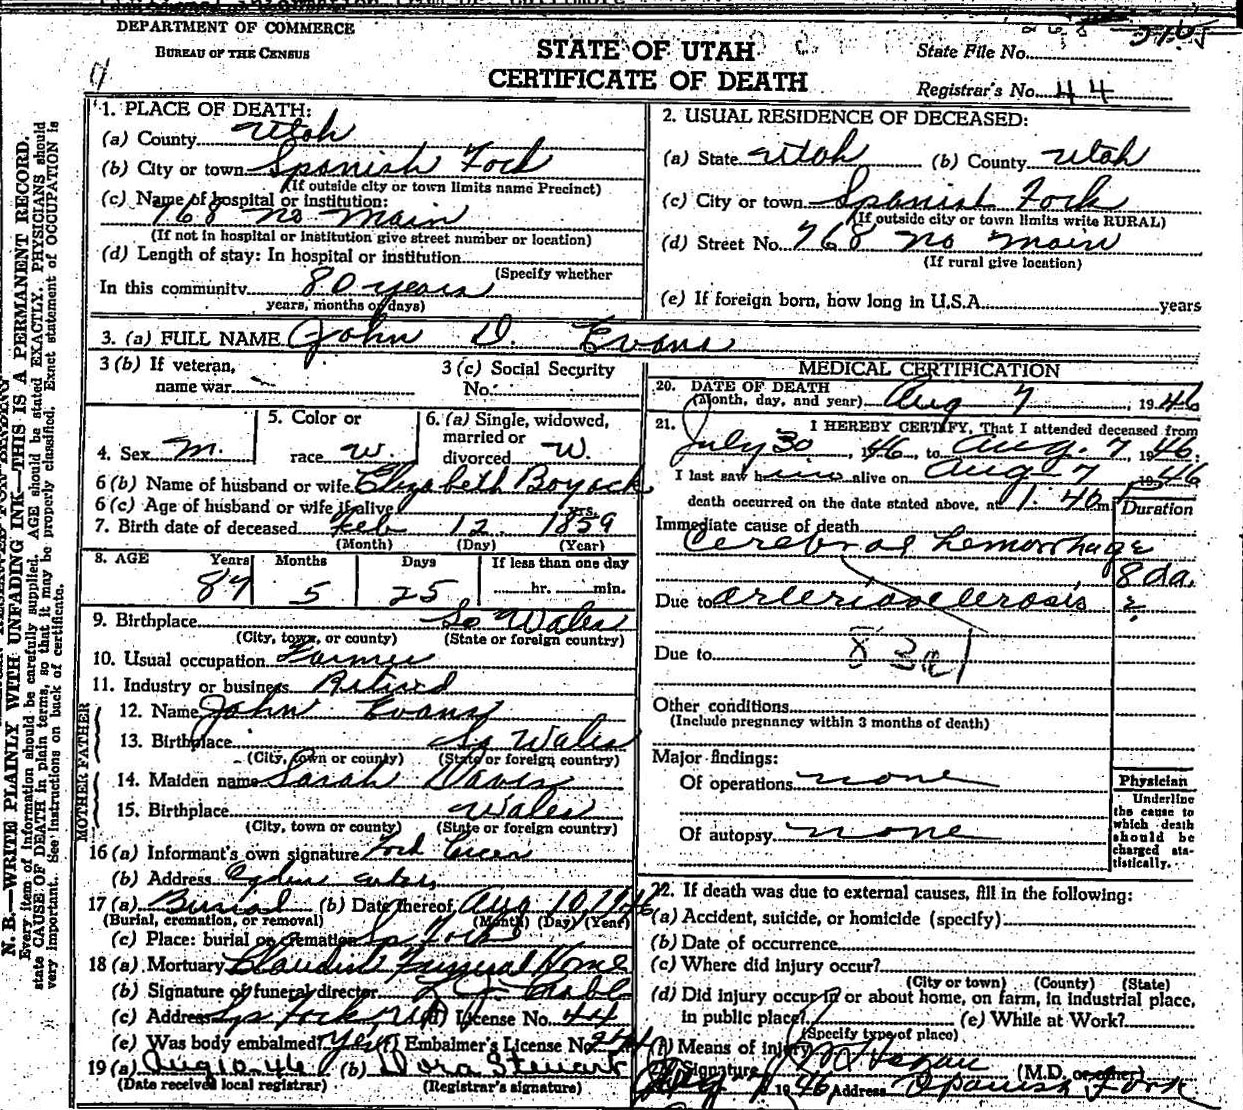 DEPARTMENT OF COMMERCE
BUREAU OF THE CENSUS
STATE OF UTAH
CERTIFICATE OF DEATH
State File No.
Registrar's No. 44
N. B.—WRITE PLAINLY WITH UNFADING INK—THIS IS A PERMANENT RECORD.
Every item of information should be carefully supplied. AGE should be stated EXACTLY. PHYSICIANS should
state CAUSE OF DEATH in plain terms, so that it may be properly classified. Exact statement of OCCUPATION is
very important. See instructions on back of certificate.
1. PLACE OF DEATH:
(a) County Utah
(b) City or town Spanish Fork
(If outside city or town limits name Precinct)
(c) Name of hospital or institution:
768 no main
(If not in hospital or institution give street number or location)
(d) Length of stay: In hospital or institution
(Specify whether
In this community 80 years
years, months or days)
2. USUAL RESIDENCE OF DECEASED:
(a) State Utah (b) County Utah
(c) City or town Spanish Fork
(If outside city or town limits write RURAL)
(d) Street No. 768 no main
(If rural give location)
(e) If foreign born, how long in U.S.A. years
3. (a) FULL NAME John D. Evans
3 (b) If veteran,
name war
3 (c) Social Security
No.
4. Sex M.
5. Color or
race W.
6. (a) Single, widowed,
married or
divorced W.
6 (b) Name of husband or wife Elizabeth Boyack
6 (c) Age of husband or wife if alive yrs.
7. Birth date of deceased Feb 12 1859
(Month) (Day) (Year)
8. AGE Years Months Days If less than one day
87 5 25 hr. min.
9. Birthplace So Wales
(City, town, or county) (State or foreign country)
10. Usual occupation Farmer
11. Industry or business Retired
FATHER
12. Name John Evans
13. Birthplace So Wales
(City, town or county) (State or foreign country)
MOTHER
14. Maiden name Sarah Davis
15. Birthplace Wales
(City, town or county) (State or foreign country)
16 (a) Informant's own signature
(b) Address Ogden
17 (a) Burial (b) Date thereof Aug 10, 1946
(Burial, cremation, or removal) (Month) (Day) (Year)
(c) Place: burial or cremation Sp Fork
18 (a) Mortuary Claudin Funeral Home
(b) Signature of funeral director
(c) Address Sp Fork, Ut (d) License No. 44
(e) Was body embalmed? yes (f) Embalmer's License No.
19 (a) Aug 10 46 (b) Dora Stewart
(Date received local registrar) (Registrar's signature)
MEDICAL CERTIFICATION
20. DATE OF DEATH
(Month, day, and year) Aug 7, 1946
21. I HEREBY CERTIFY, That I attended deceased from
July 30, 1946, to Aug. 7, 1946.
I last saw him alive on Aug 7 1946
death occurred on the date stated above, at 1:40 m
Duration
Immediate cause of death
Cerebral hemorrhage
8 da.
Due to arteriosclerosis ?
Due to 83a
Other conditions
(Include pregnancy within 3 months of death)
Major findings:
Of operations none
Of autopsy none
Physician
Underline
the cause to
which death
should be
charged sta-
tistically.
22. If death was due to external causes, fill in the following:
(a) Accident, suicide, or homicide (specify)
(b) Date of occurrence
(c) Where did injury occur?
(City or town) (County) (State)
(d) Did injury occur in or about home, on farm, in industrial place,
in public place? (e) While at Work?
(Specify type of place)
(f) Means of injury
Signature (M.D. or other)
1946 Address Spanish Fork